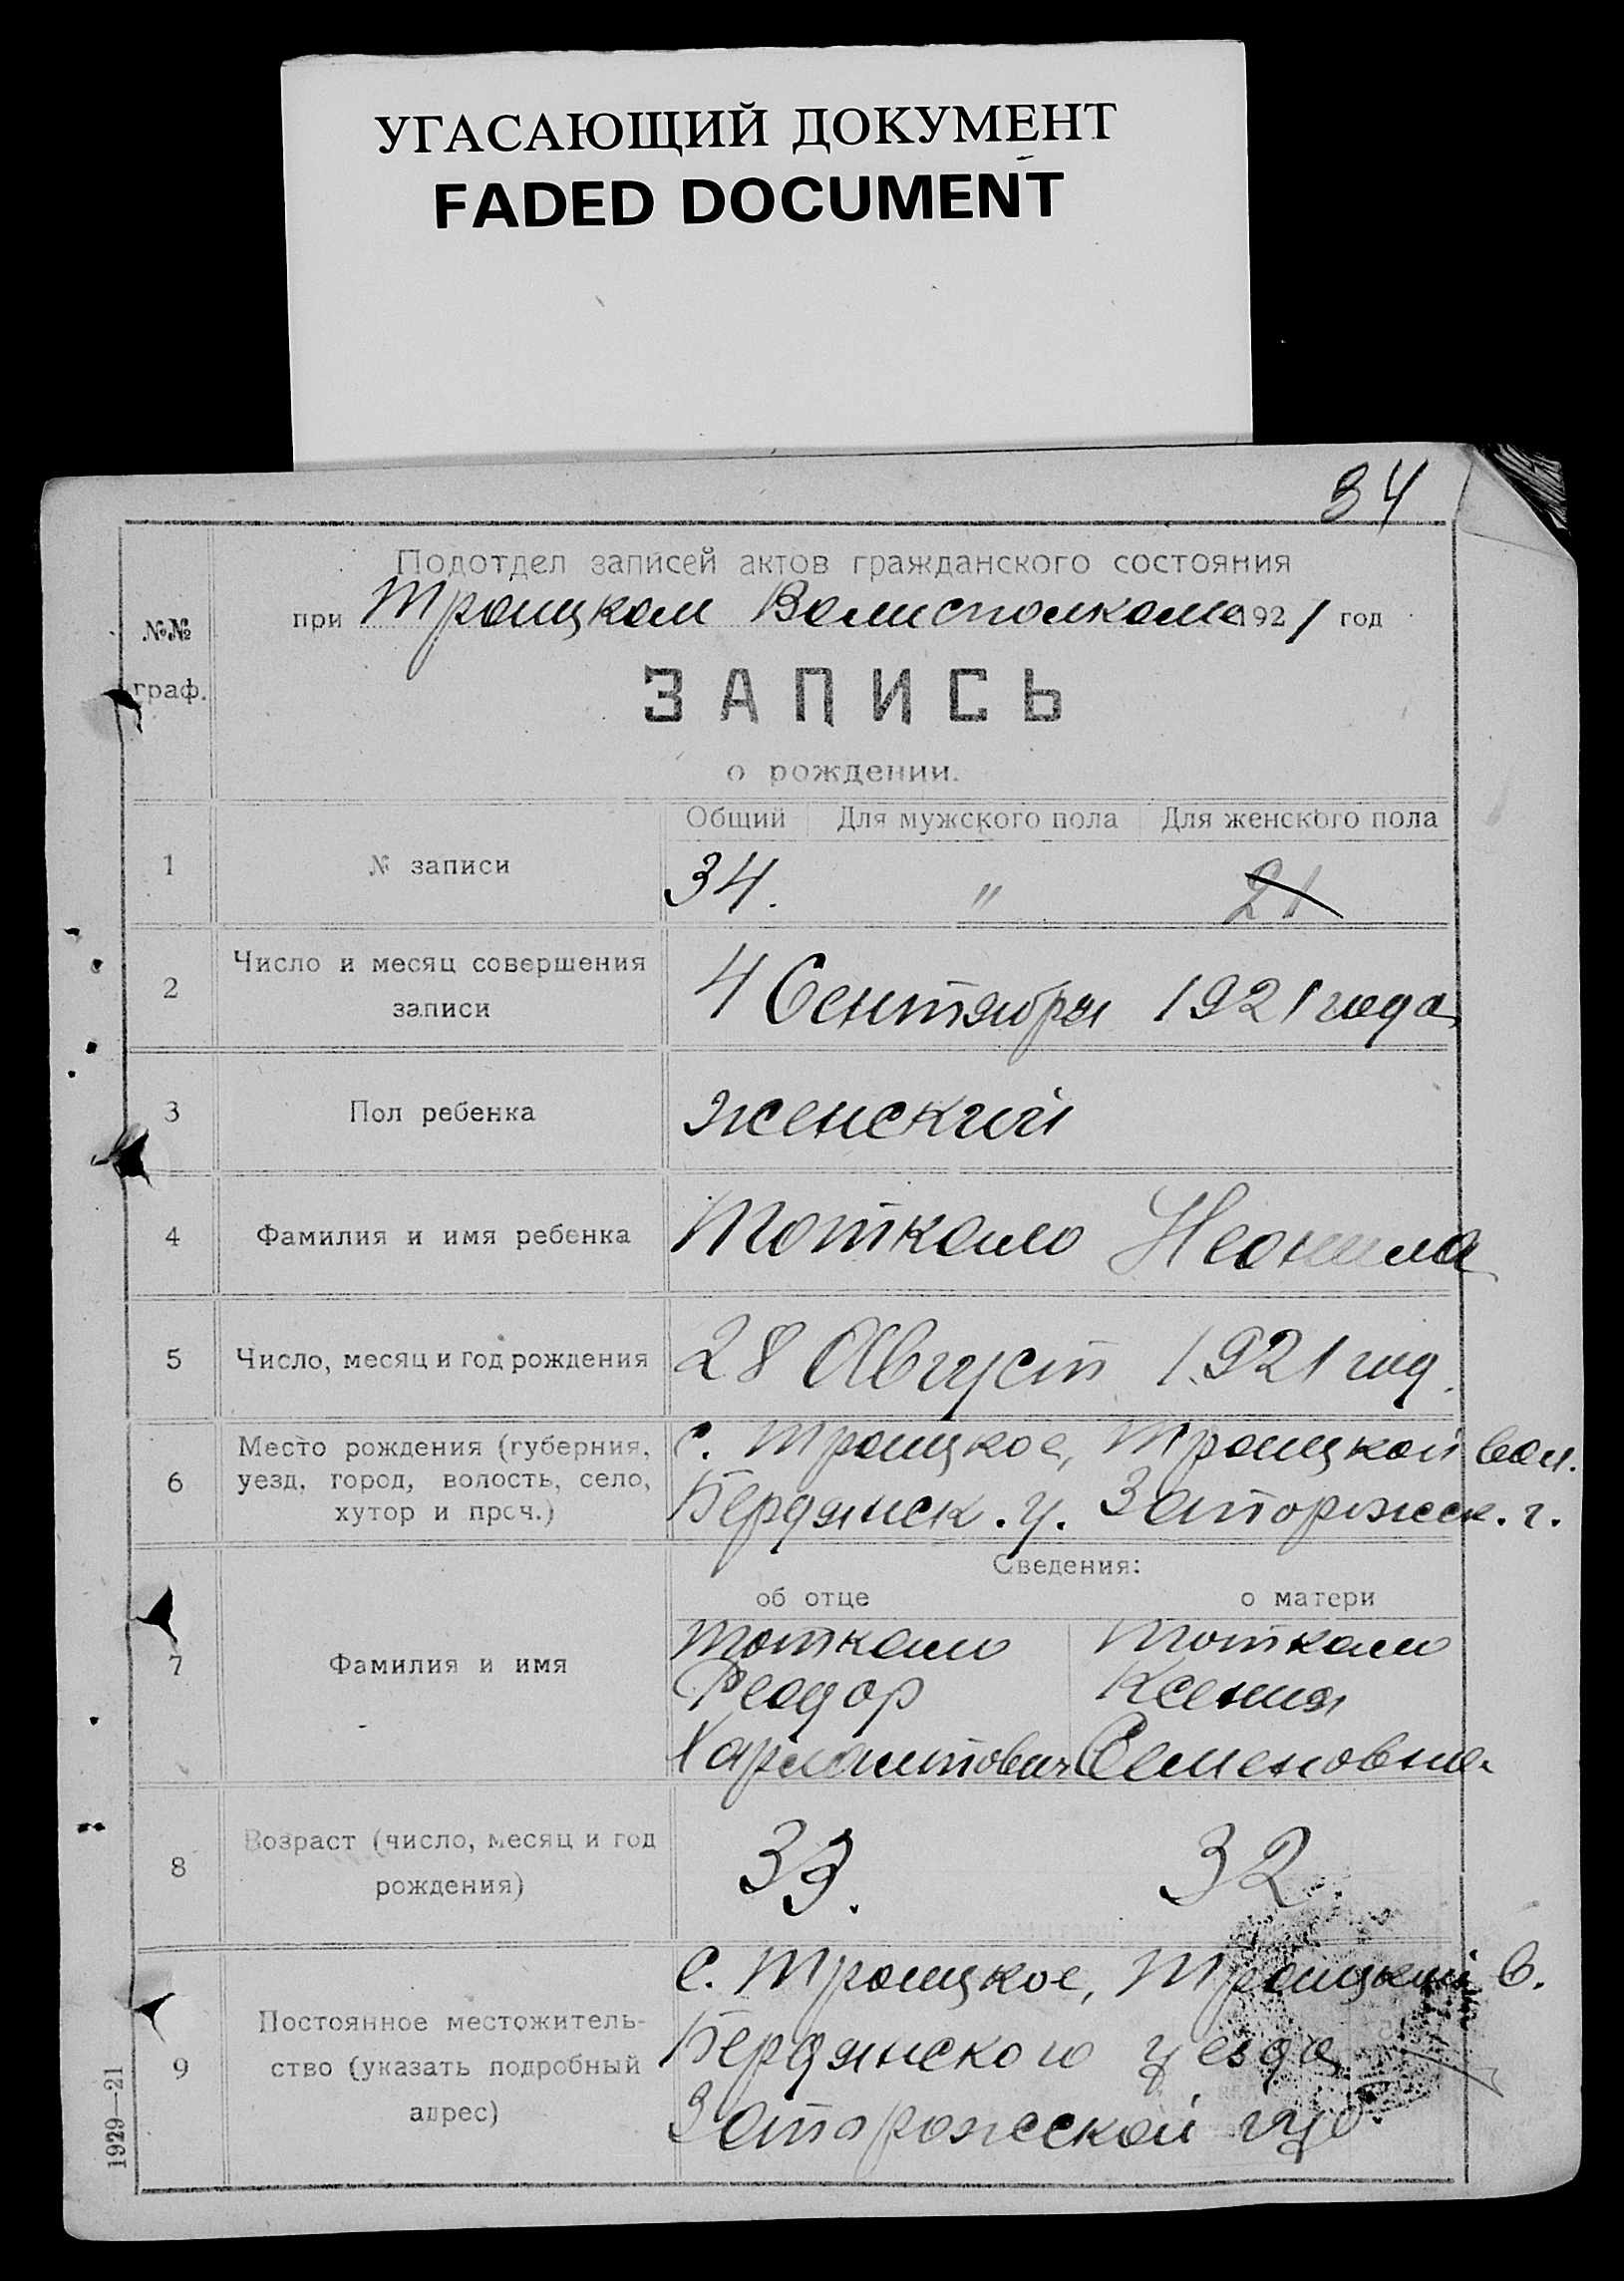 УГАСАЮЩИЙ ДОКУМЕНТ
FADED DOCUMENT
34
№№ граф.
Подотдел записей актов гражданского состояния
при Троицком Волисполкоме 1921 год
ЗАПИСЬ
о рождении.
Общий Для мужского пола Для женского пола
1 № записи 34. " 21
2 Число и месяц совершения
записи
4 Сентября 1921 года
3 Пол ребенка женский
4 Фамилия и имя ребенка Тоткало Неонила
5 Число, месяц и год рождения 28 Август 1921 год.
6 Место рождения (губерния,
уезд, город, волость, село,
хутор и проч.)
с. Троицкое, Троицкой вол.
Бердянск. у. Запорожск. г.
Сведения:
об отце о матери
7 Фамилия и имя
Тоткало Тоткало
Феодор Ксения
Харлампович Семеновна
8 Возраст (число, месяц и год
рождения)
33. 32.
9 Постоянное местожитель-
ство (указать подробный
адрес)
с. Троицкое, Троицкой в.
Бердянского уезда
Запорожской губ.
1929—21